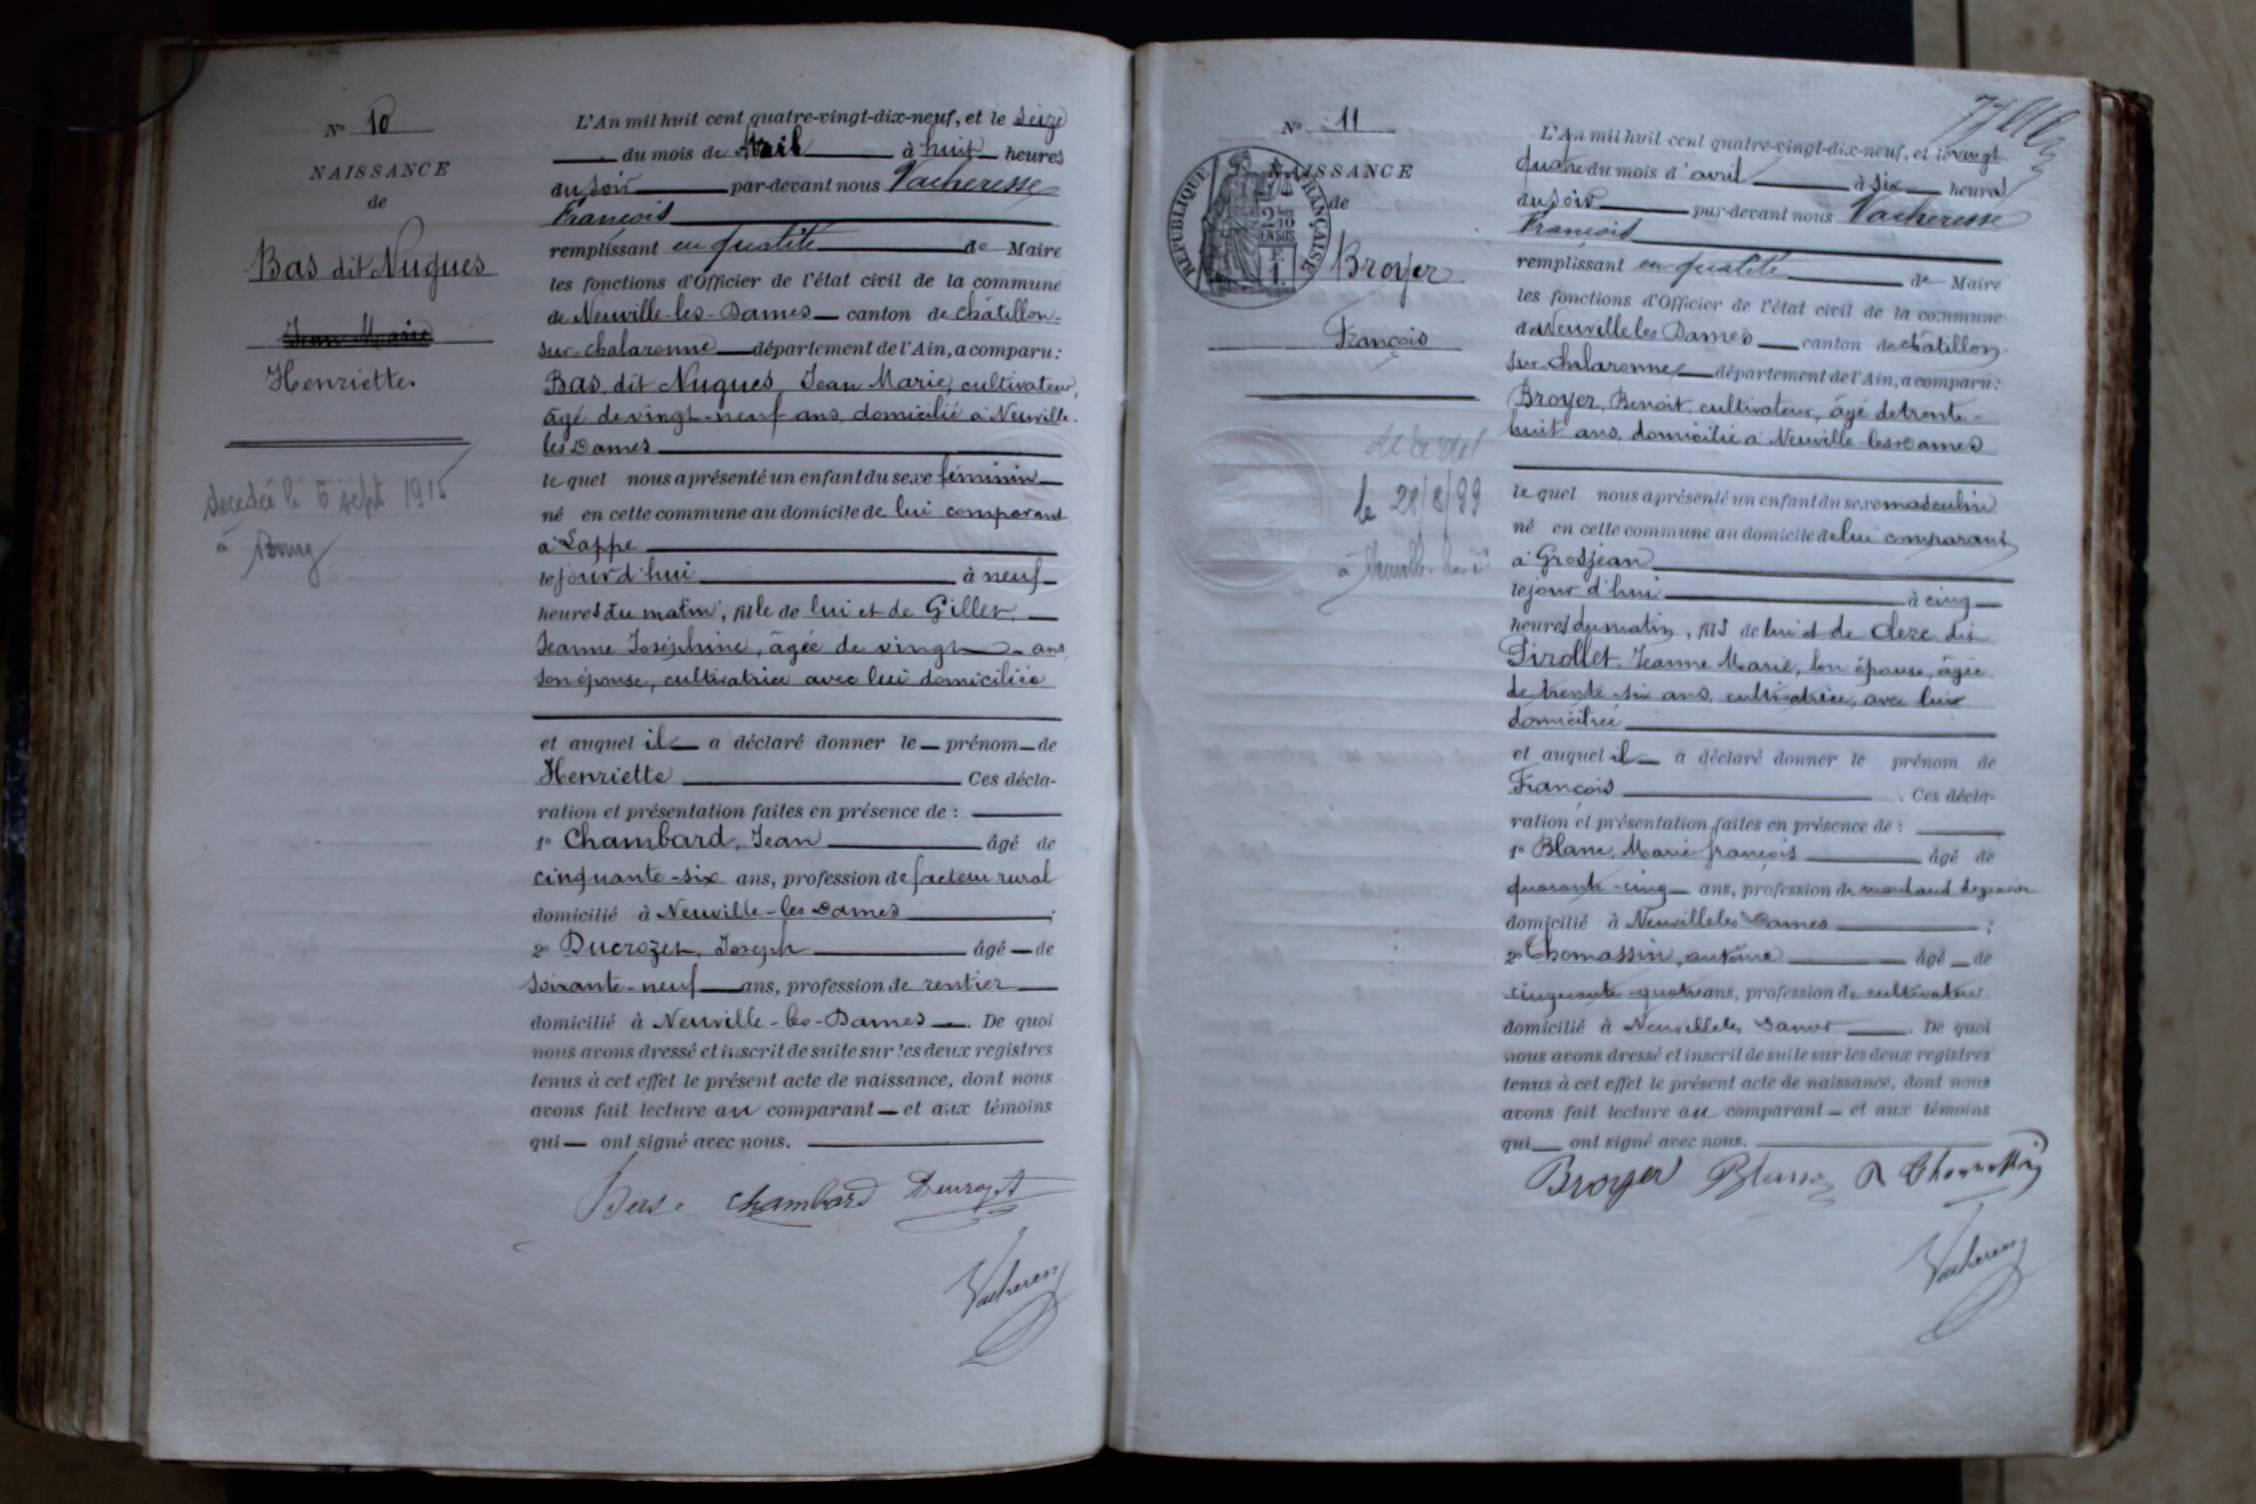 N° 10
NAISSANCE
de
Bas dit Nugues
Jean Marie
Henriette.
decedée le 6 sept 1915
à Bourg
L'An mil huit cent quatre-vingt-dix-neuf, et le seize
du mois de Avril à huit heures
du soir par-devant nous Vacheresse
François
remplissant en qualité de Maire
les fonctions d'Officier de l'état civil de la commune
de Neuville-les-Dames canton de châtillon-
sur-chalaronne département de l'Ain, a comparu:
Bas dit Nugues, Jean Marie, cultivateur,
âgé de vingt-neuf ans, domicilié à Neuville-
les Dames
le quel nous a présenté un enfant du sexe féminin
né en cette commune au domicile de lui comparant
à Lappe
le jour d'hui à neuf
heures du matin, fille de lui et de Giller,
Jeanne Joséphine, âgée de vingt ans
son épouse, cultivatrice avec lui domiciliée
et auquel il a déclaré donner le prénom de
Henriette Ces décla-
ration et présentation faites en présence de :
1° Chambard, Jean âgé de
cinquante-six ans, profession de facteur rural
domicilié à Neuville-les Dames ;
2° Ducrozet, Joseph âgé de
soixante-neuf ans, profession de rentier
domicilié à Neuville-les-Dames. De quoi
nous avons dressé et inscrit de suite sur les deux registres
tenus à cet effet le présent acte de naissance, dont nous
avons fait lecture au comparant et aux témoins
qui ont signé avec nous.
chambard Ducrozet
N° 11
NAISSANCE
de
RÉPUBLIQUE FRANÇAISE
2/10
EN SUS
Broyer
François
décédé
le 28/8/99
à Neuville-les-Ds
L'An mil huit cent quatre-vingt-dix-neuf, et le vingt
quatre du mois d'avril à six heures
du soir par-devant nous Vacheresse
François
remplissant en qualité de Maire
les fonctions d'Officier de l'état civil de la commune
de Neuville les Dames canton de châtillon-
sur-chalaronne département de l'Ain, a comparu:
Broyer, Benoit, cultivateur, âgé de trente-
huit ans, domicilié à Neuville-les Dames
le quel nous a présenté un enfant du sexe masculin
né en cette commune au domicile de lui comparant
à Grosjean
le jour d'hui à cinq
heures du matin, fils de lui et de Clerc dit
Pirollet, Jeanne Marie, son épouse, âgée
de trente-six ans, cultivatrice, avec lui
domiciliée
et auquel il a déclaré donner le prénom de
François . Ces décla-
ration et présentation faites en présence de :
1° Blanc, Marie françois âgé de
quarante-cinq ans, profession de marchand
domicilié à Neuville les Dames ;
2° Thomassin, antoine âgé de
cinquante-quatre ans, profession de cultivateur
domicilié à Neuville les Dames. De quoi
nous avons dressé et inscrit de suite sur les deux registres
tenus à cet effet le présent acte de naissance, dont nous
avons fait lecture au comparant et aux témoins
qui ont signé avec nous.
Broyer Blanc A Thomassin